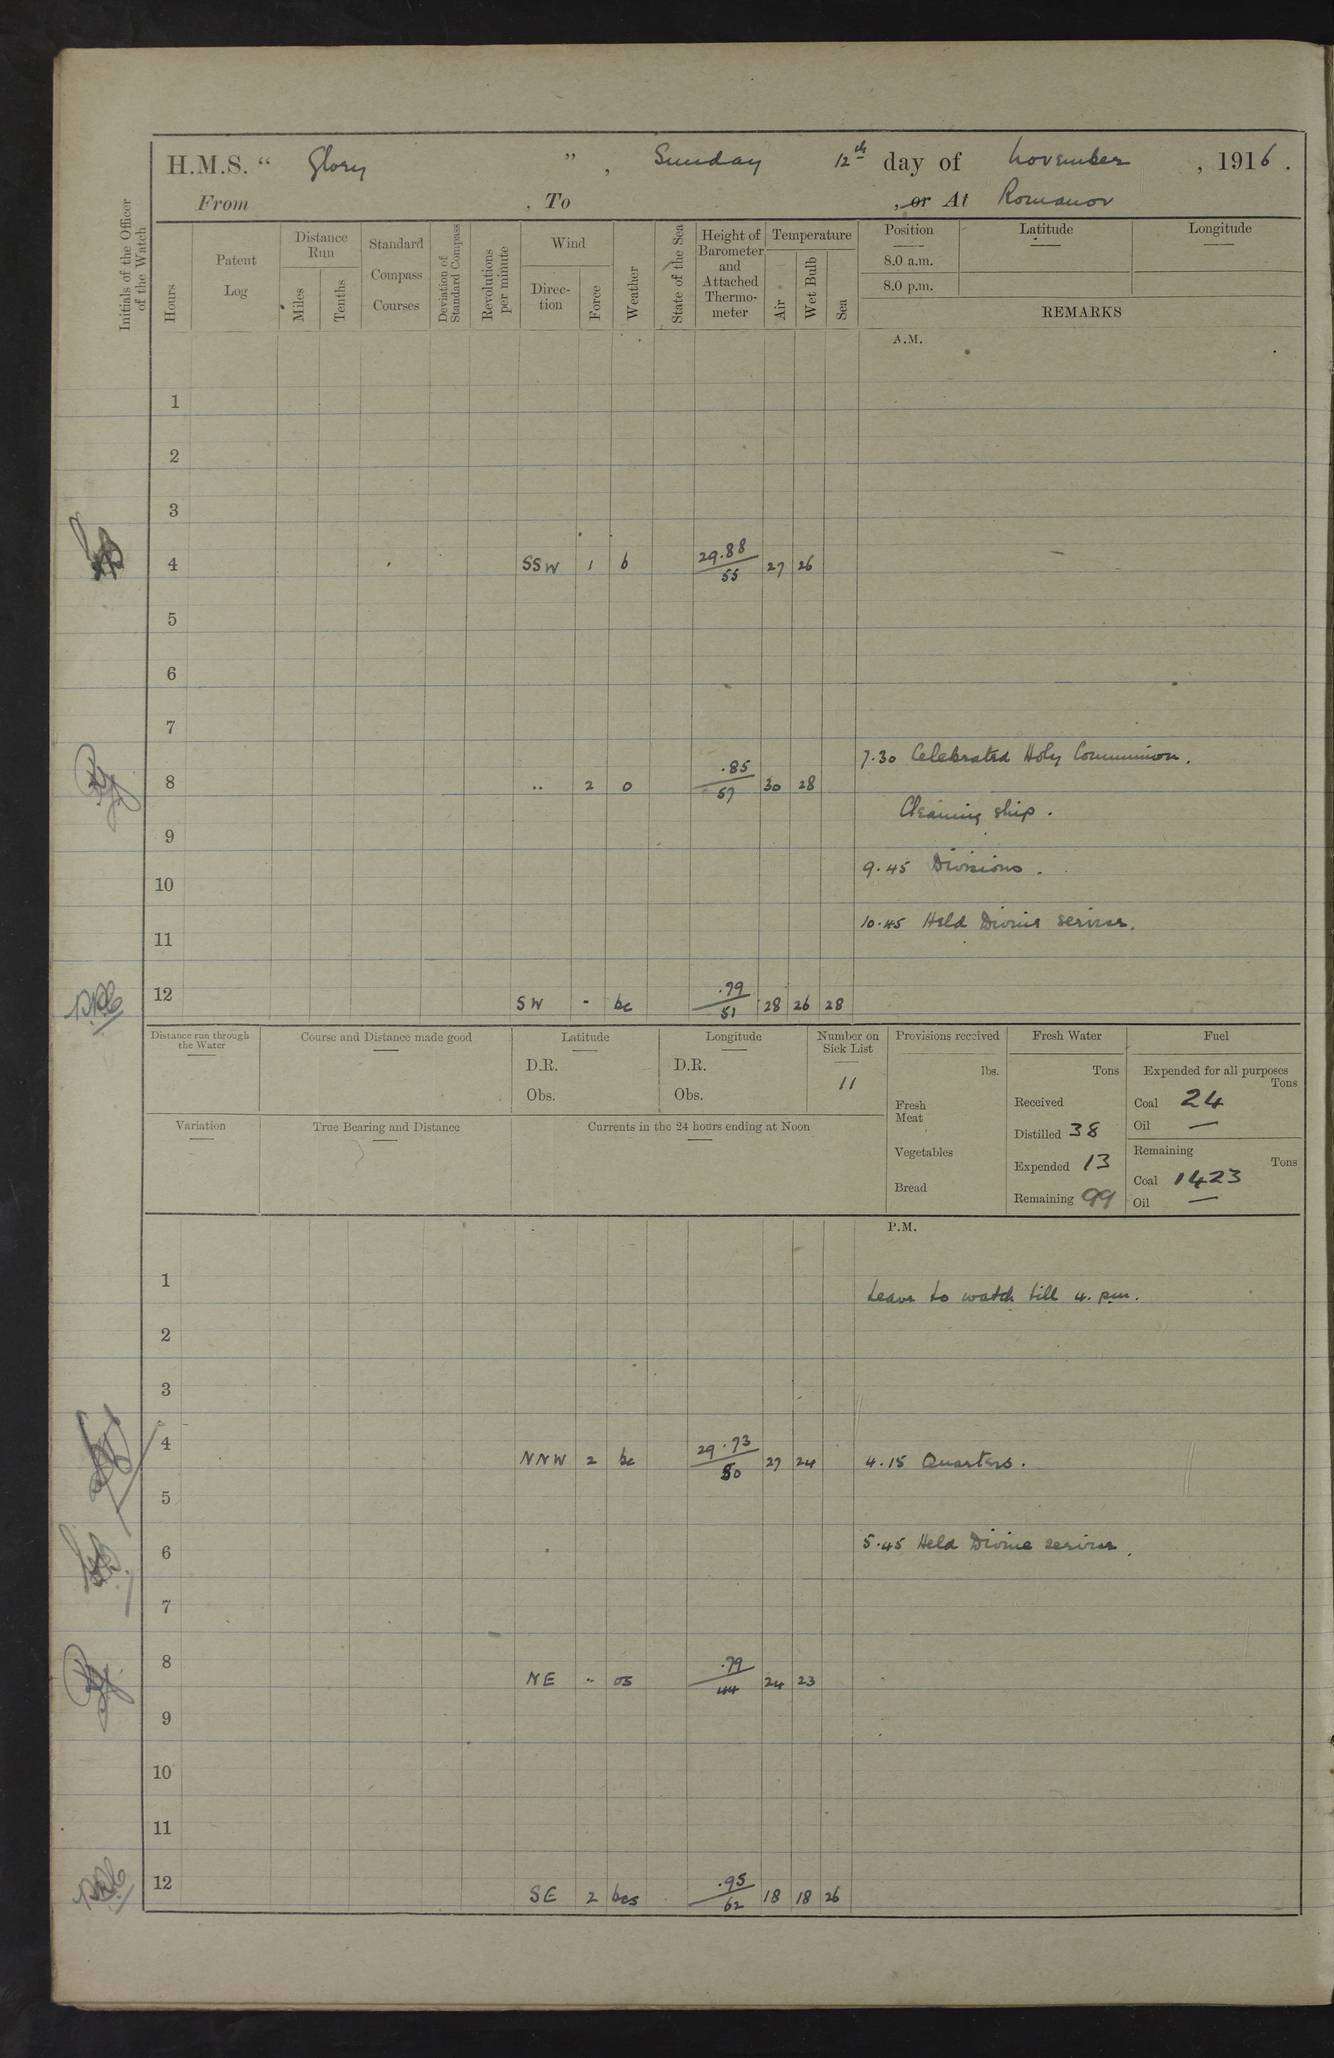 H.M.S. “ Glory ” , Sunday 12th day of November , 1916 .
From , To , or At Romanov
Initials of the Officer of the Watch
Hours
Patent Log
Distance Run
Miles
Tenths
Standard Compass Courses
Deviation of Standard Compass
Revolutions per minute
Wind
Direc-tion
Force
Weather
State of the Sea
Height of Barometer and Attached Thermo-meter
Temperature
Air
Wet Bulb
Sea
Position
8.0 a.m.
8.0 p.m.
Latitude
Longitude
REMARKS
A.M.
1
2
3
4 SSW 1 b 29.88/55 27 26
5
6
7
7.30 Celebrated Holy Communion.
8 .. 2 o .85/57 30 28
Cleaning ship.
9
9.45 Divisions.
10
10.45 Held Divine service.
11
12 SW - bc .79/51 28 26 28
Distance run through the Water
Course and Distance made good
Latitude
D.R.
Obs.
Longitude
D.R.
Obs.
Number on Sick List
11
Variation
True Bearing and Distance
Currents in the 24 hours ending at Noon
Provisions received
lbs.
Fresh Meat
Vegetables
Bread
Fresh Water
Tons
Received
Distilled 38
Expended 13
Remaining 99
Fuel
Expended for all purposes
Tons
Coal 24
Oil —
Remaining
Tons
Coal 1423
Oil —
P.M.
1
Leave to watch till 4. pm.
2
3
4 NNW 2 bc 29.73/50 27 24 4.15 Quarters.
5
6 5.45 Held Divine service.
7
8 NE .. os .79/44 24 23
9
10
11
12 SE 2 bcs .95/62 18 18 26